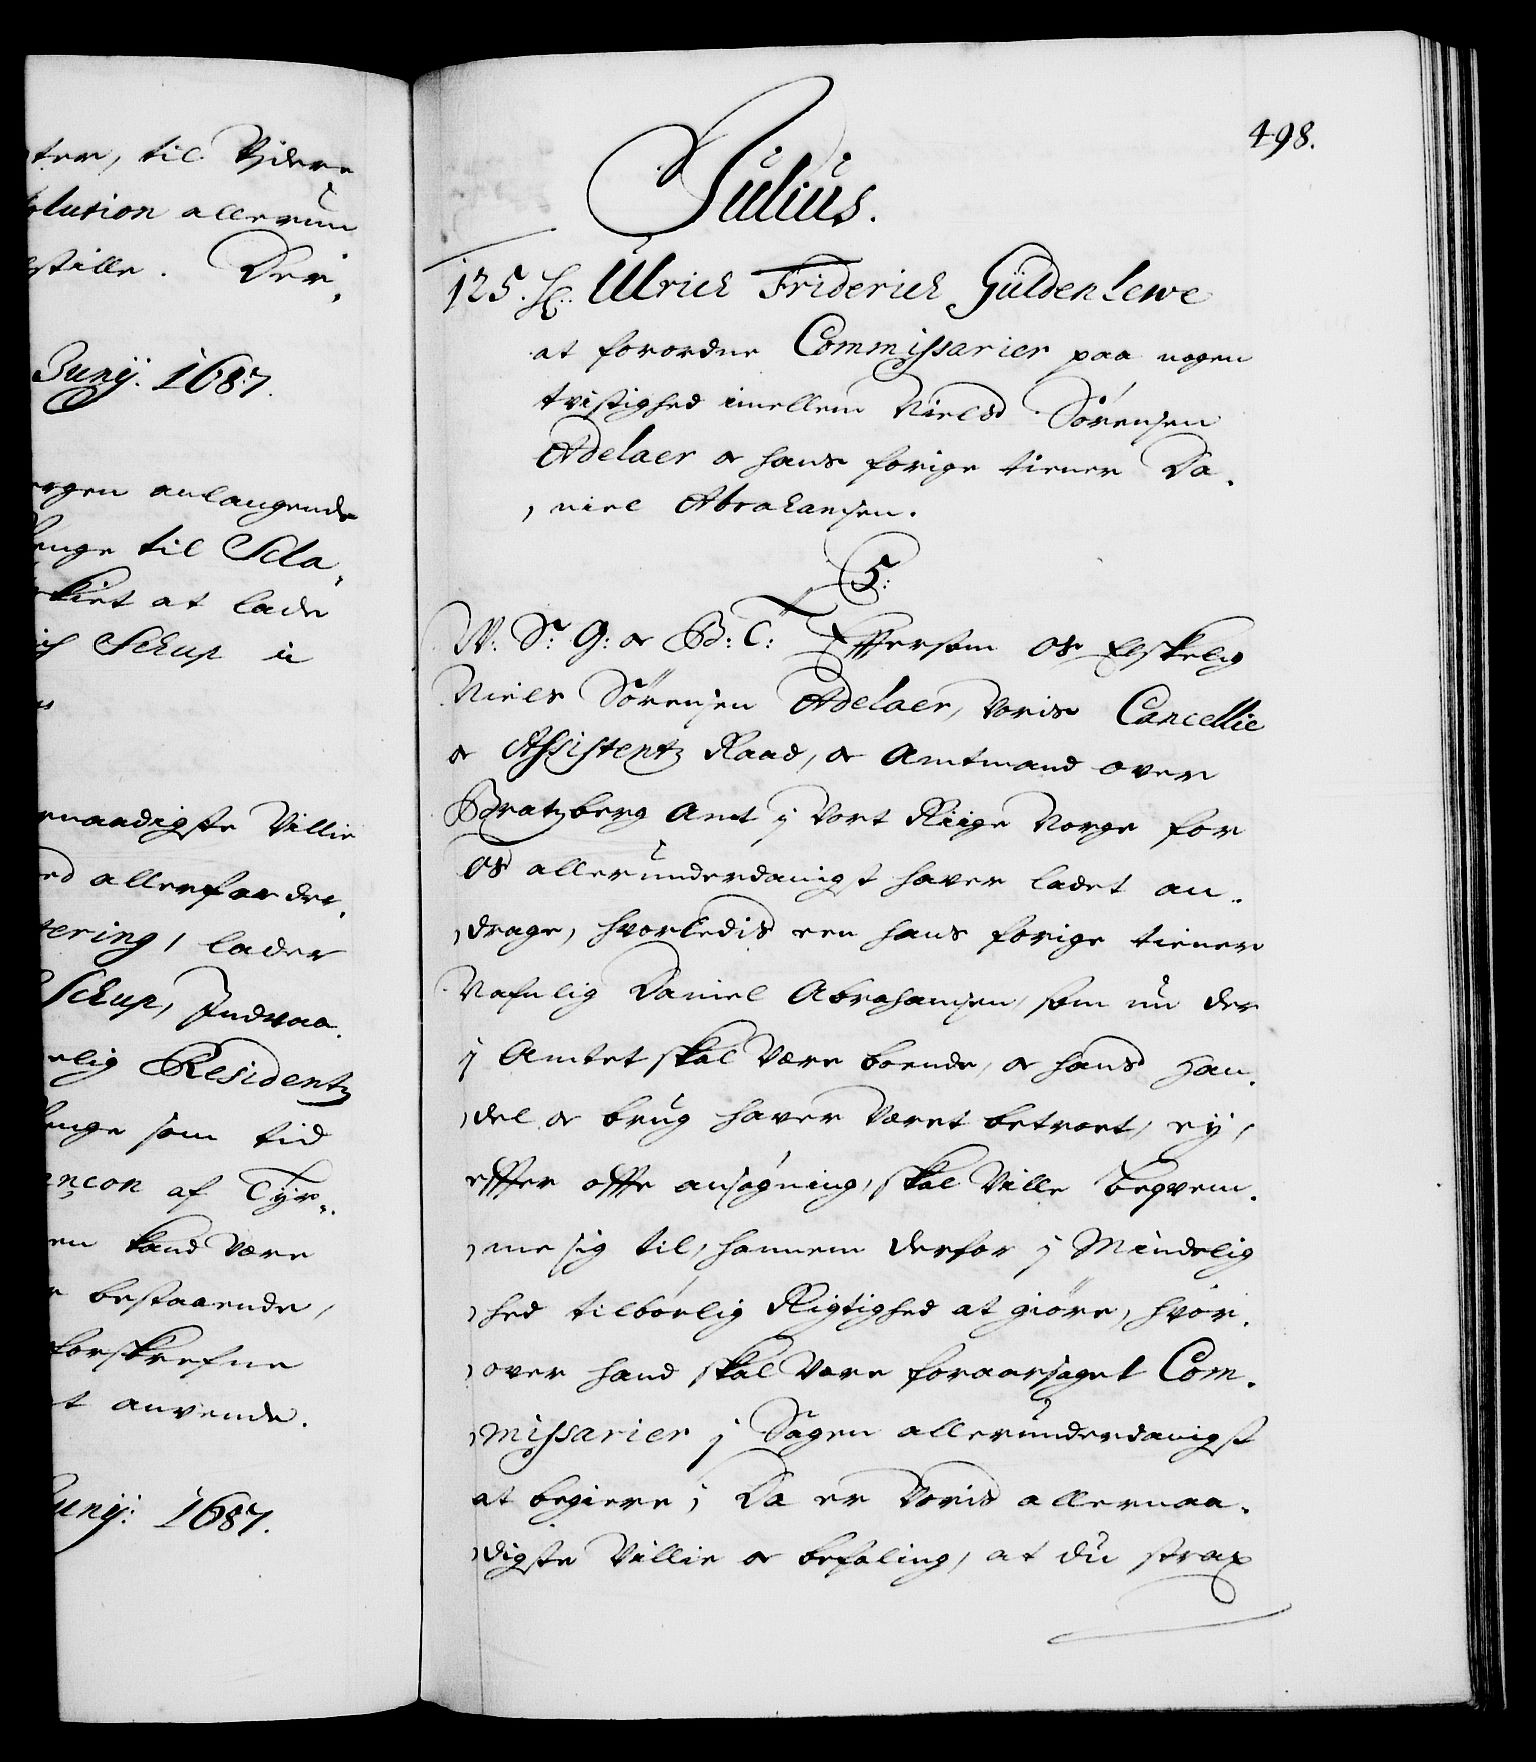 ter, til Vjdere
olution allerun
stille. Der,
Junij. 1687.
ergen anlangende
lenge til Scla,
rkiet at lade
ich Schup u
ernaadigste Villie
ed allerforder,
tering, lader
Schup, Indvaa,
elig Residentz
lenge som tid
ançon af Tyr,
en kand være
r bestaaende,
forskrefne
t anvende.
Junij: 1687.
498.
Julius.
125. Hr: Ulrich Friderich Güldenlewe
at forordne Commissarier paa nogen
tvistighed imellem Nields Sörensen
Adelaer oc hans forige tiener Da,
,niel Abrahamsen.
5:
W: Sr: G: oc B: C: Effersom os Elskelig
Niels Sörensen Adelaer, Voris Cancellie
oc Assistentz Raad, oc Amtmand over
Bratzberg Amt j Vort Riige Norge for
os allerunderdanigst haver ladet an,
,drage, hvorledis een hans forige tiener
Nafnlig Daniel Abrahamsen, som nu der
j Amtet skal være boende, oc hans Han,
,del oc brug haver været betroet, ej,
effter offte ansögning, skal Ville beqvem,
,me sig til, hannem derfor j Mindelig
,hed tilbörlig Rigtighed at giöre, hvor,
,over hand skal være foraarsaget Com,
,missarier j Sagen allerunderdanigst
at begiere; Da er Voris allernaa,
,digste Villie oc befaling, at du strax